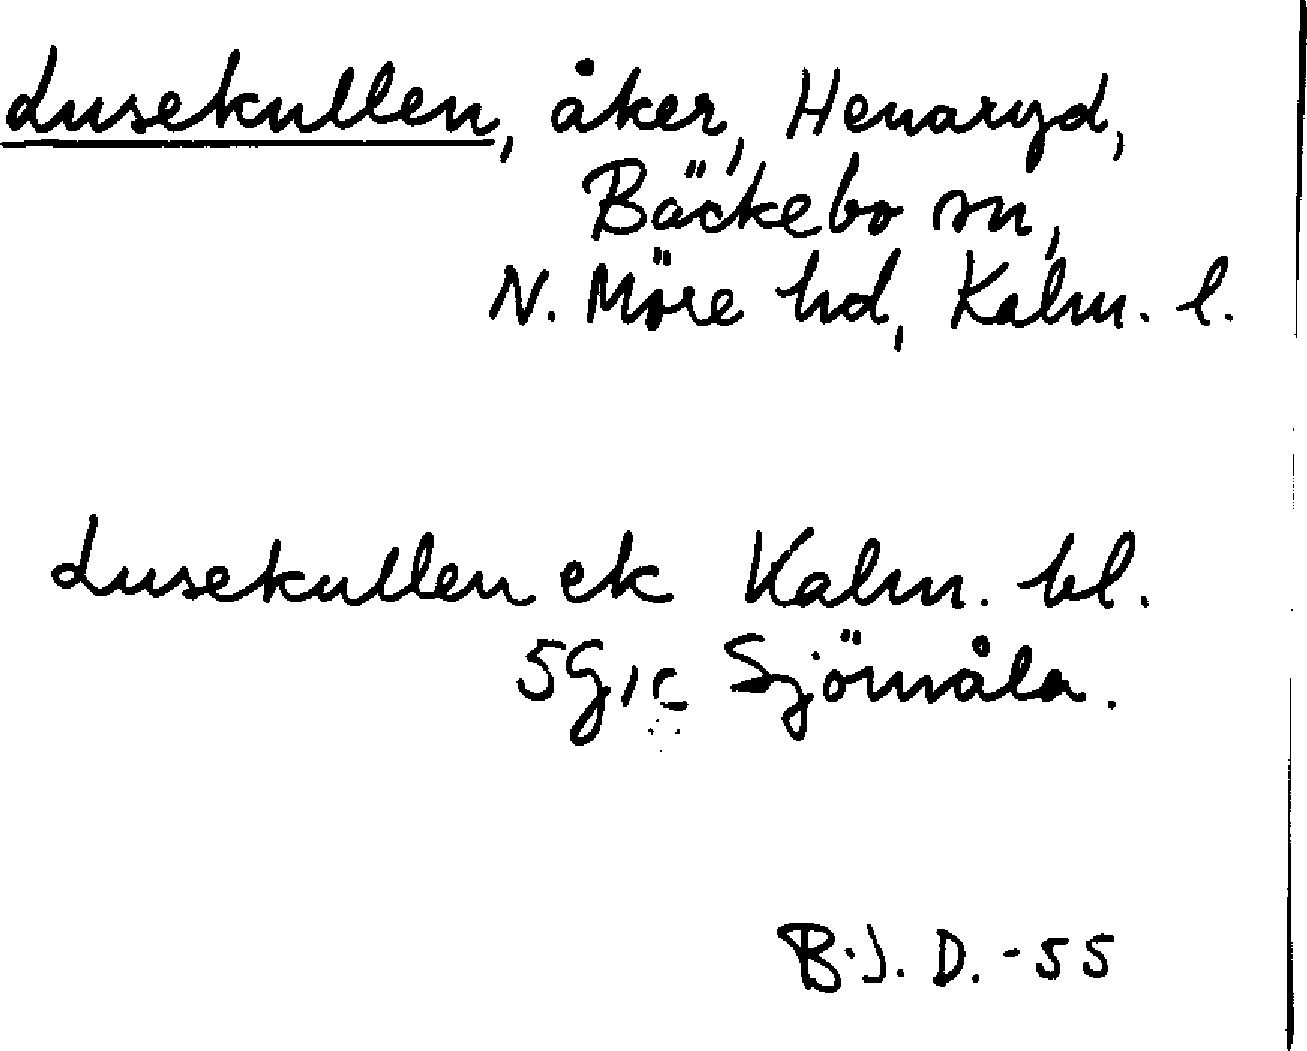 Lusekullen, åker, Henaryd,
Bäckebo sn,
N. Möre hd, Kalm. l.
Lusekullen ek Kalm. bl.
5G, Sjömåla.
B.J. D. -55